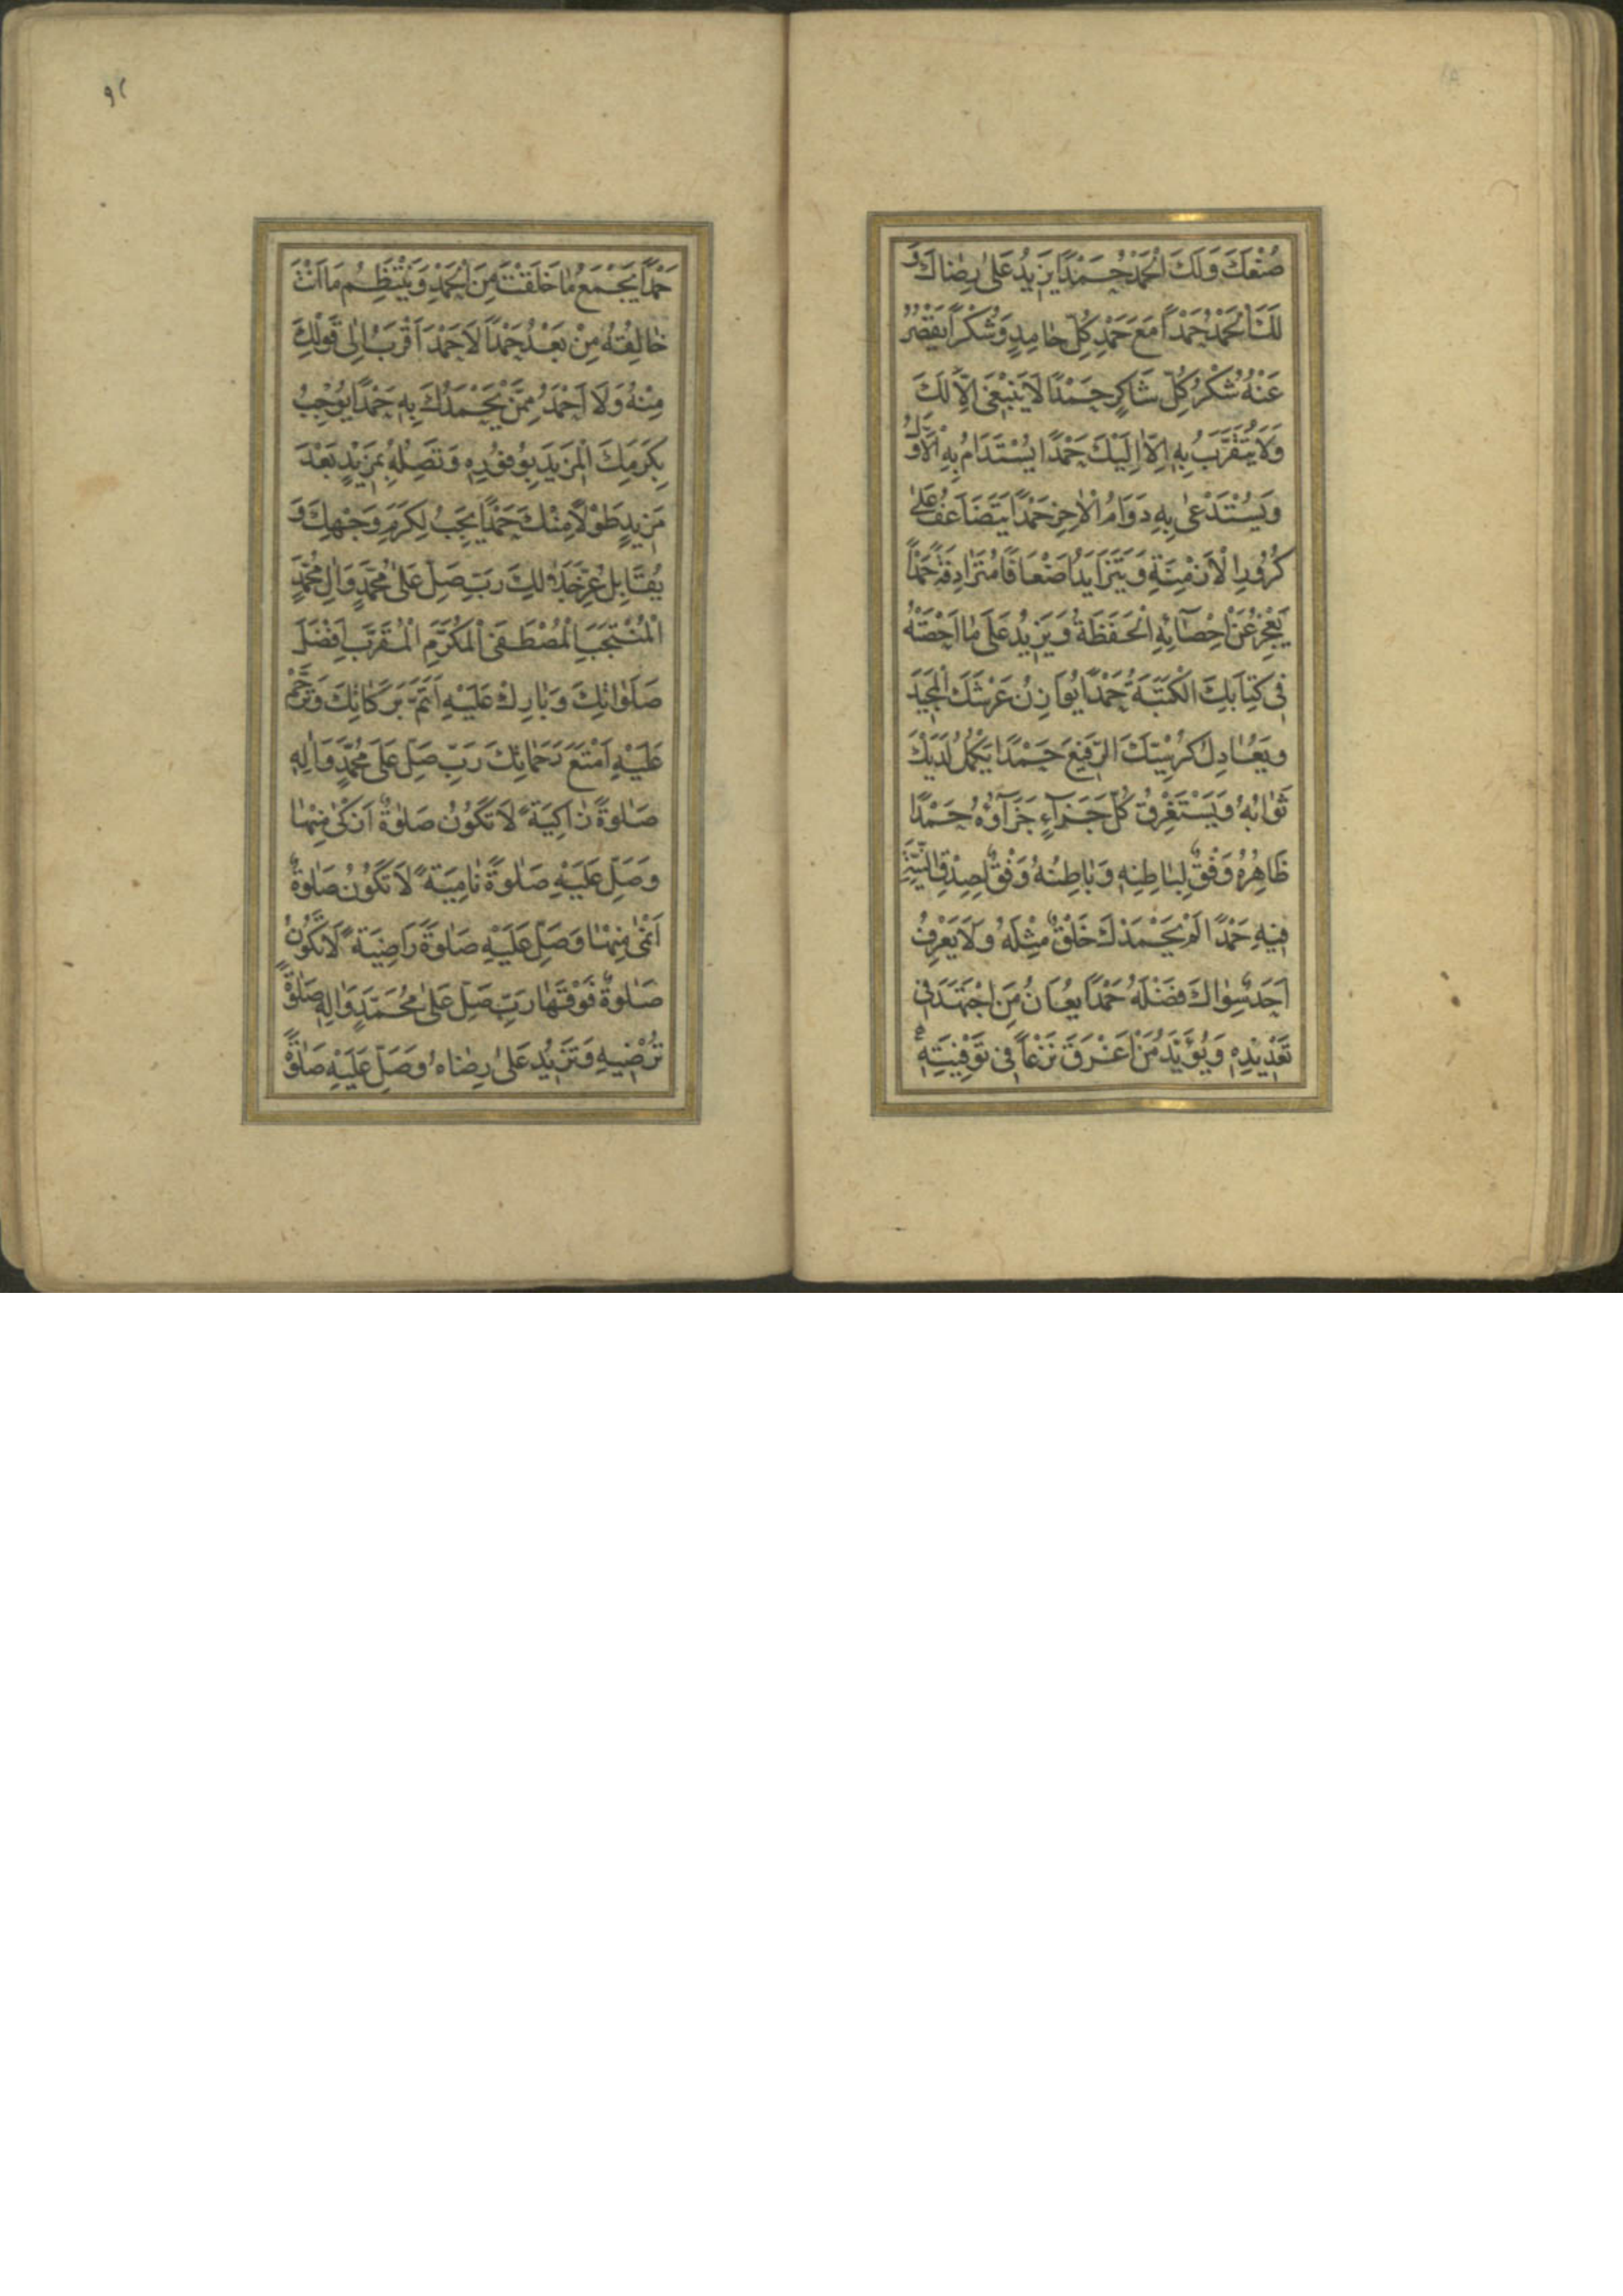 صُنْعَكَ وَلَكَ الْحَمْدُ حَمْدًا يَزِيدُ عَلىٰ رِضٰاكَ وَ
لَكَ الْحَمْدُ حَمْدًا مَعَ حَمْدِ كُلِّ حٰامِدٍ وَشُكْرًا يَقْصُرُ
عَنْهُ شُكْرُ كُلِّ شَاكِرٍ حَمْدًا لَا يَنْبَغِى اِلّٰا لَكَ
وَلَا يُتَقَرَّبُ بِهِ اِلّٰا اِلَيْكَ حَمْدًا يُسْتَدَامُ بِهِ الْاَوَّلُ
وَيُسْتَدْعىٰ بِهِ دَوَامُ الْاٰخِرِ حَمْدًا يَتَضَاعَفُ عَلىٰ
كُرُورِ الْاَزْمِنَةِ وَيَتَزَايَدُ اَضْعَافًا مُتَرَادِفَةً حَمْدًا
يَعْجِزُ عَنْ اِحْصَآئِهِ الْحَفَظَةُ وَيَزِيدُ عَلَى مٰا اَحْصَتْهُ
فِى كِتَابِكَ الْكَتَبَةُ حَمْدًا يُوَازِنُ عَرْشَكَ الْمَجِيدَ
وَيُعٰادِلُ كُرْسِيَّكَ الرَّفِيعَ حَمْدًا يَكْمُلُ لَدَيْكَ
ثَوٰابُهُ وَيَسْتَغْرِقُ كُلَّ جَزَآءٍ جَزَآؤُهُ حَمْدًا
ظَاهِرُهُ وَفْقٌ لِبٰاطِنِهِ وَبٰاطِنُهُ وَفْقٌ لِصِدْقِ النِّيَّةِ
فِيهِ حَمْدًا لَمْ يَحْمَدْكَ خَلْقٌ مِثْلَهُ وَلَا يَعْرِفُ
اَحَدٌ سِوٰاكَ فَضْلَهُ حَمْدًا يُعَانُ مَنِ اجْتَهَدَ فِى
تَعْدِيْدِهِ وَيُؤَيَّدُ مَنْ اَغْرَقَ نَزْعًا فِى تَوْفِيَتِهِ
٩٢
حَمْدًا يَجْمَعُ مٰا خَلَقْتَ مِنَ الْحَمْدِ وَيَنْتَظِمُ مَا اَنْتَ
خٰالِقُهُ مِنْ بَعْدُ حَمْدًا لَا حَمْدَ اَقْرَبُ اِلٰى قَوْلِكَ
مِنْهُ وَلَا اَحْمَدُ مِمَّنْ يَحْمَدُكَ بِهِ حَمْدًا يُوْجِبُ
بِكَرَمِكَ الْمَزِيدَ بِوُفُوْرِهِ وَتَصِلُهُ بِمَزِيْدٍ بَعْدَ
مَزِيدٍ طَوْلًا مِنْكَ حَمْدًا يَجِبُ لِكَرَمِ وَجْهِكَ وَ
يُقَابِلُ عِزَّ جَلٰالِكَ رَبِّ صَلِّ عَلىٰ مُحَمَّدٍ وَاٰلِ مُحَمَّدٍ
الْمُنْتَجَبِ الْمُصْطَفَى الْمُكَرَّمِ الْمُقَرَّبِ اَفْضَلَ
صَلَوٰاتِكَ وَبٰارِكْ عَلَيْهِ اَتَمَّ بَرَكَاتِكَ وَتَرَحَّمْ
عَلَيْهِ اَمْتَعَ رَحَمٰاتِكَ رَبِّ صَلِّ عَلَى مُحَمَّدٍ وَاٰلِهِ
صَلٰوةً زٰاكِيَةً لَا تَكُوْنُ صَلٰوةٌ اَزْكىٰ مِنْهٰا
وَصَلِّ عَلَيْهِ صَلٰوةً نٰامِيَةً لَا تَكُوْنُ صَلٰوةٌ
اَنْمىٰ مِنْهٰا وَصَلِّ عَلَيْهِ صَلٰوةً رَاضِيَةً لَا تَكُوْنُ
صَلٰوةٌ فَوْقَهٰا رَبِّ صَلِّ عَلىٰ مُحَمَّدٍ وَاٰلِهِ صَلٰوةً
تُرْضِيهِ وَتَزِيْدُ عَلىٰ رِضٰاهُ وَصَلِّ عَلَيْهِ صَلٰوةً